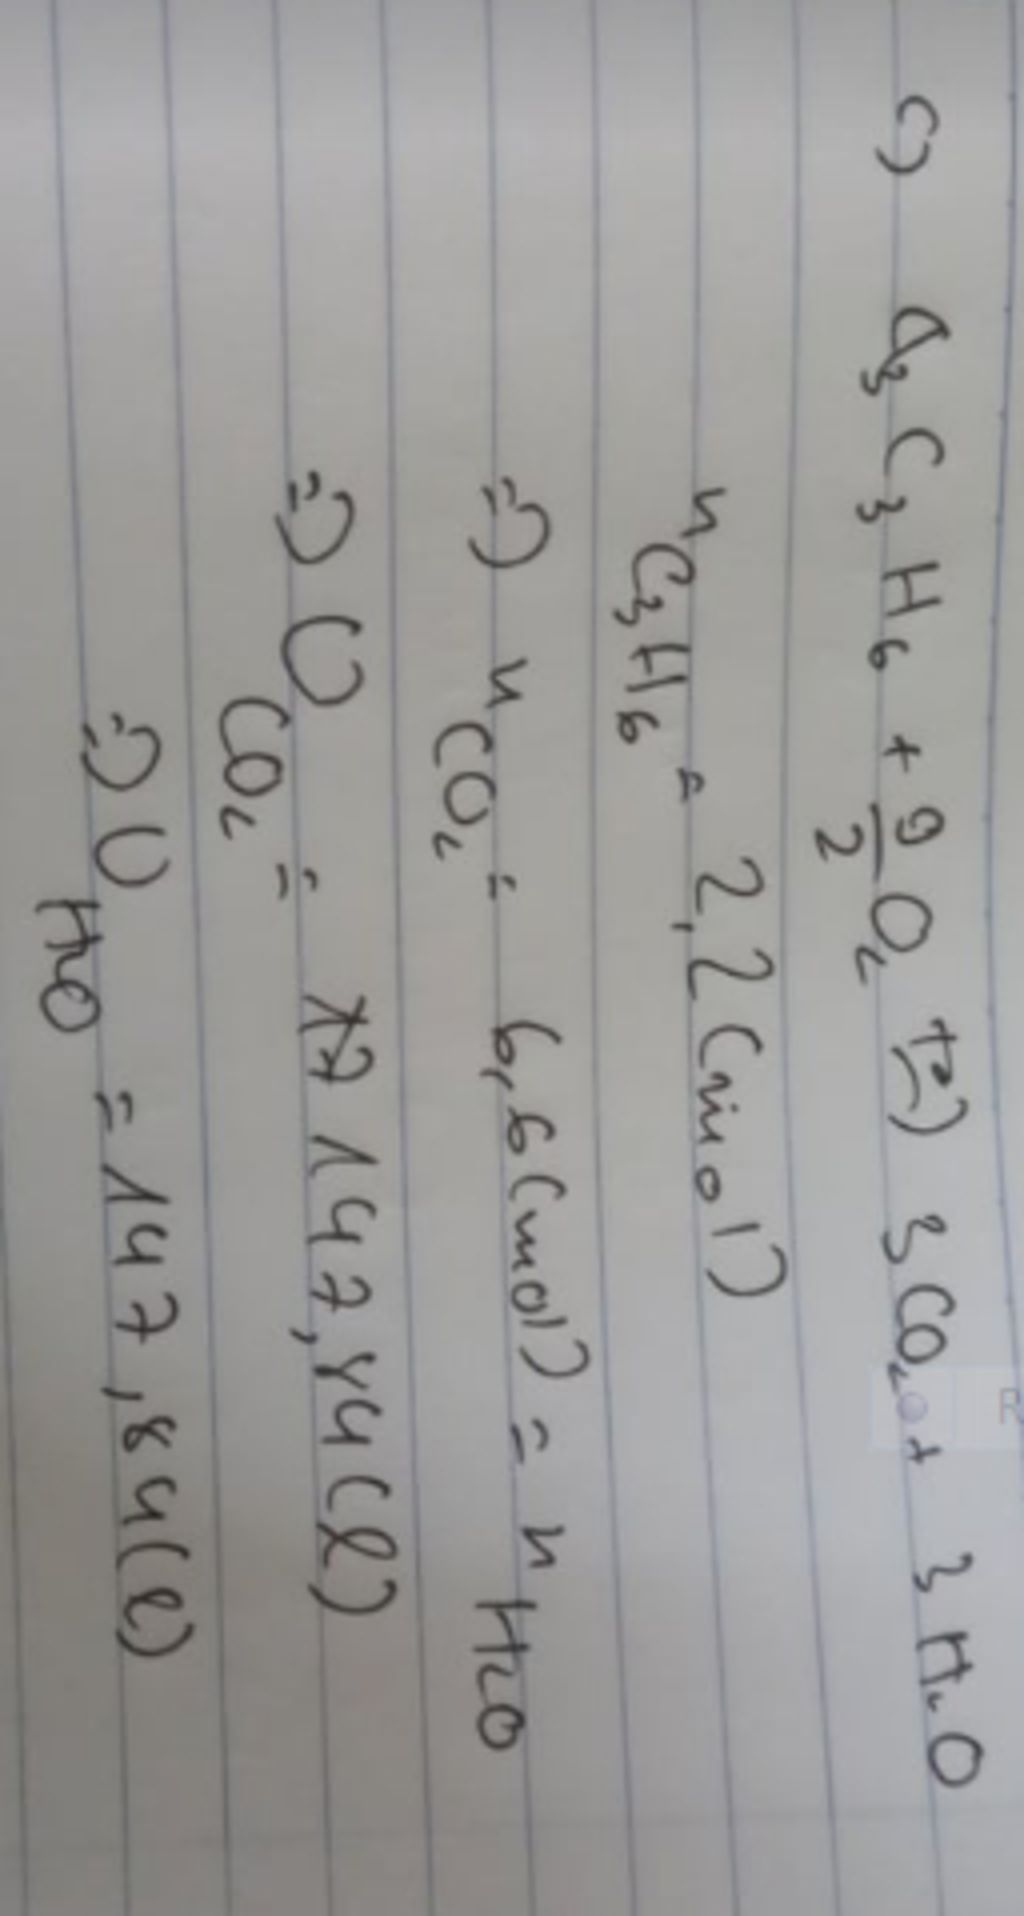 c) C₃H₆ + 9/2 O₂ t°→ 3CO₂ + 3H₂O
n C₃H₆ = 2,2 (mol)
=> n CO₂ = 6,6 (mol) = n H₂O
=> V CO₂ = 147,84 (l)
=> V H₂O = 147,84 (l)